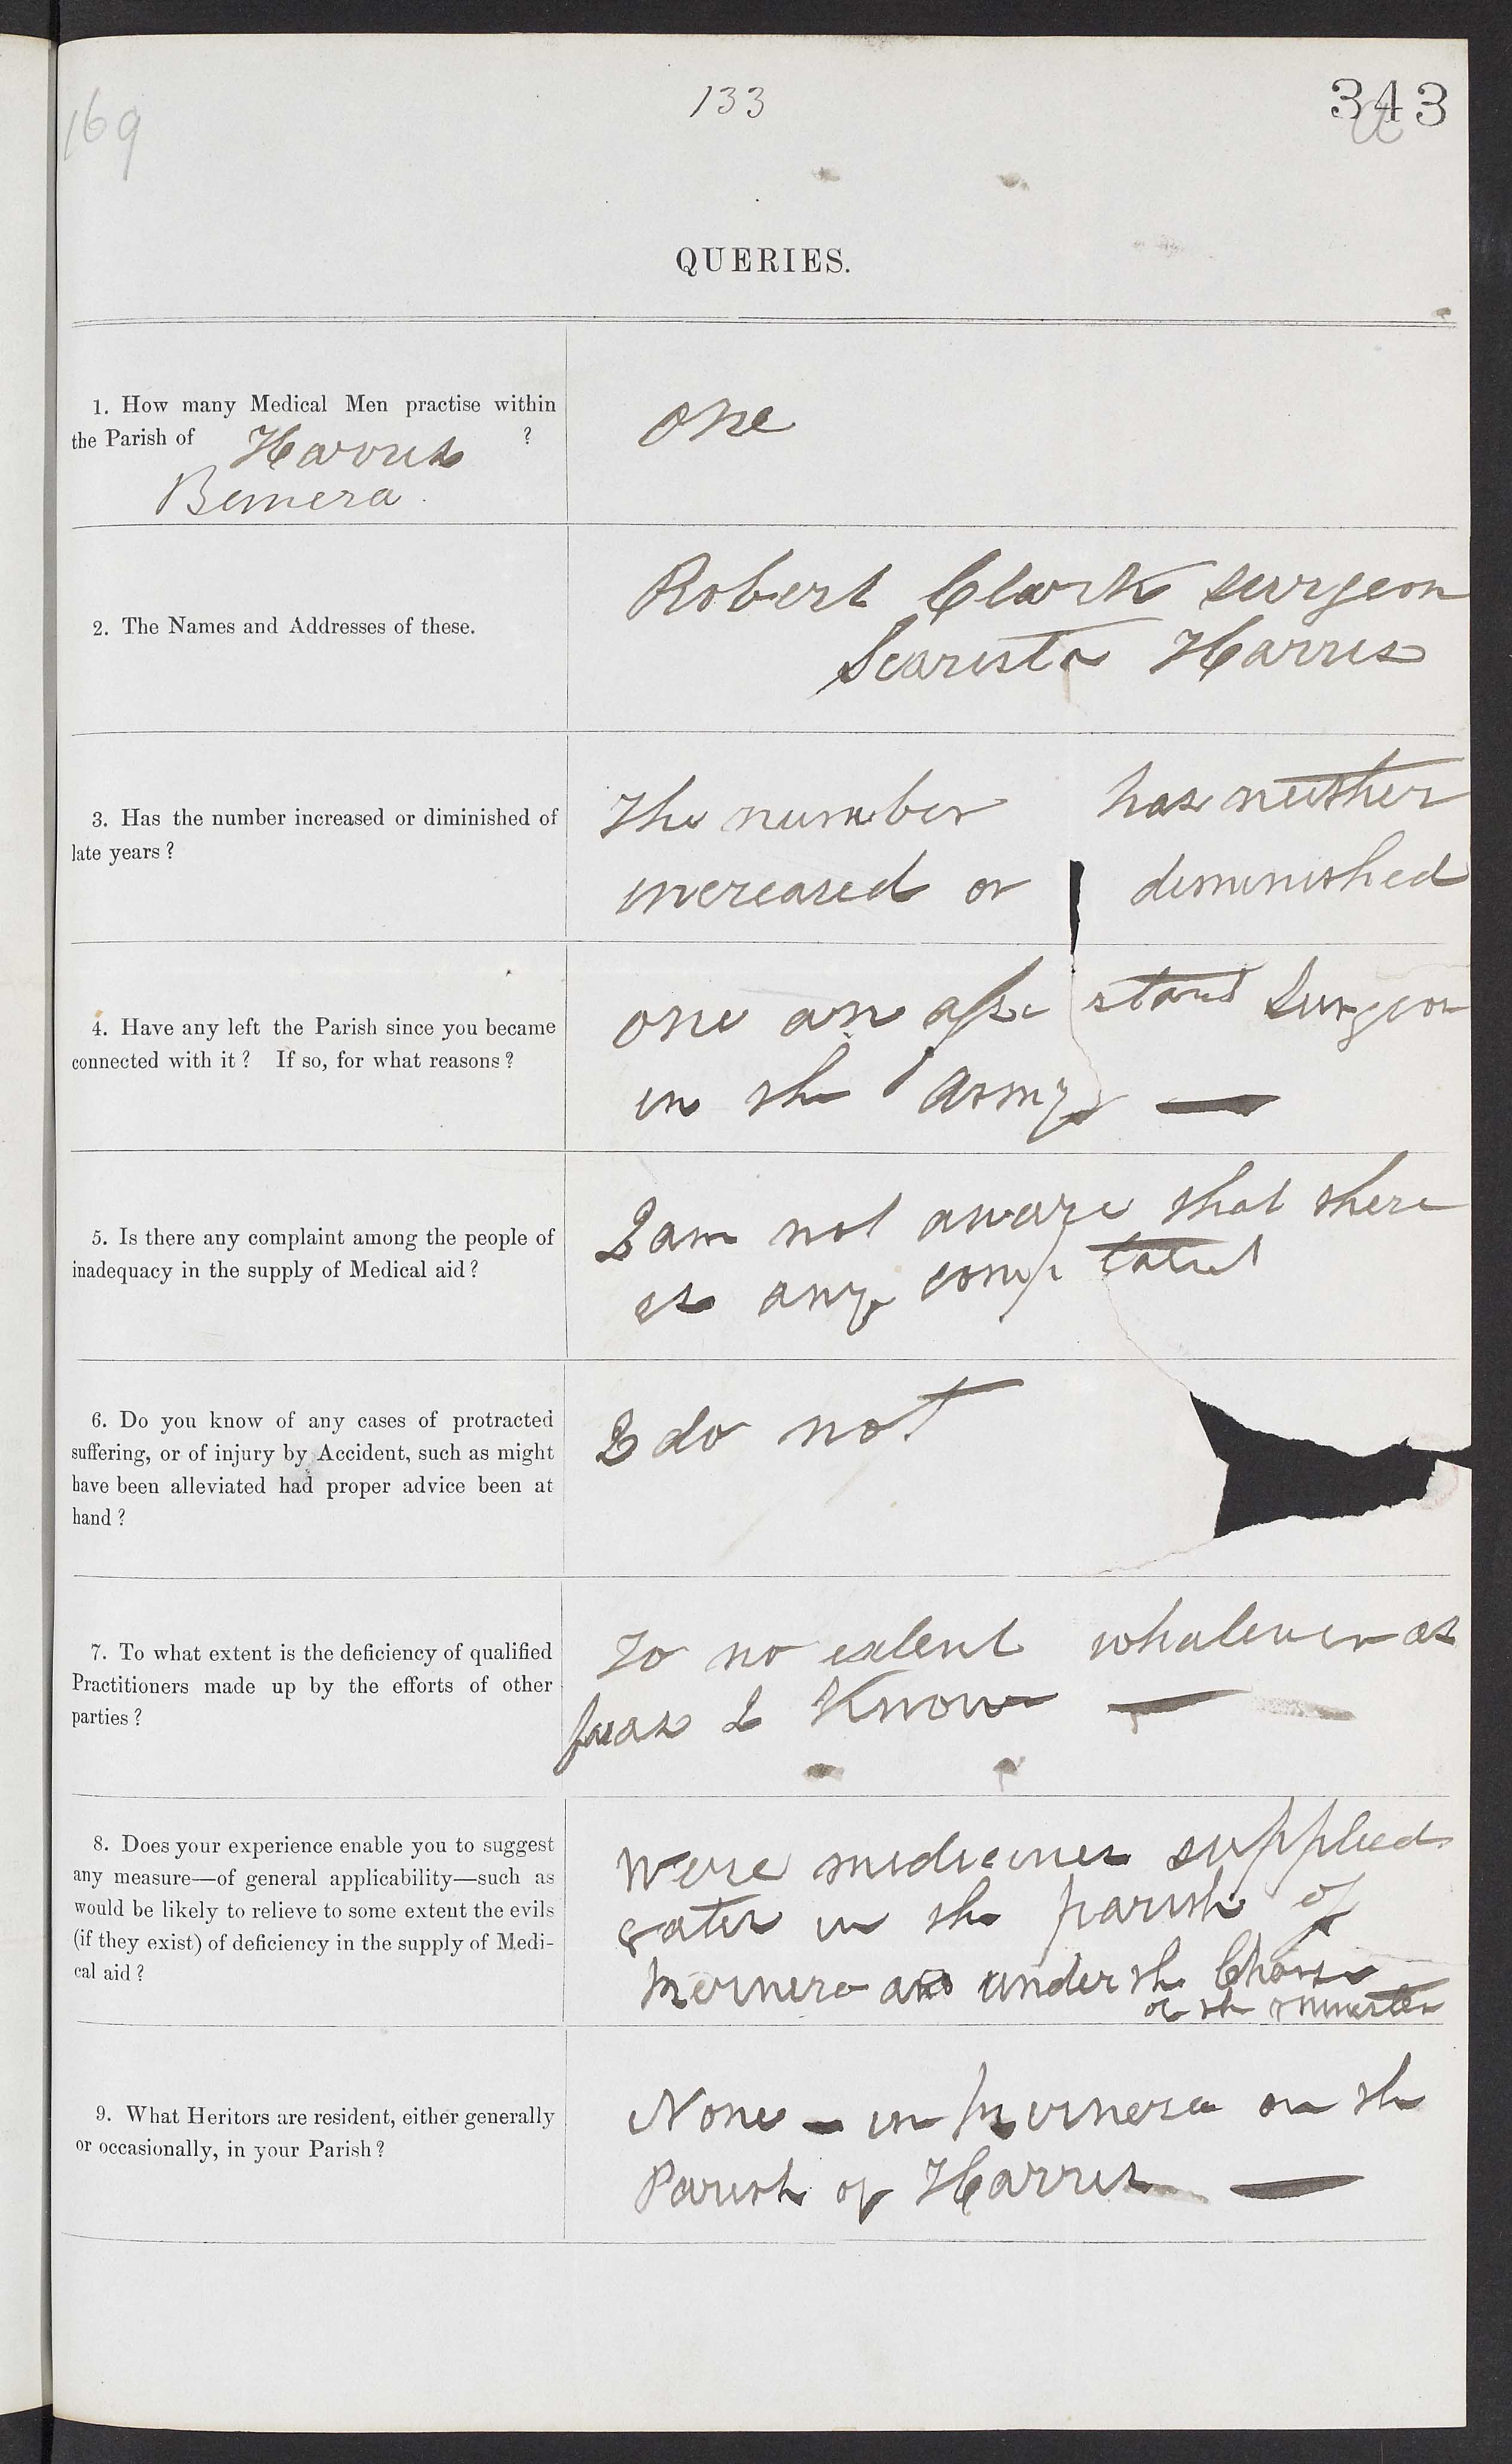 169
133
343
QUERIES.
1. How many Medical Men practise within
the Parish of Harris ?
Bernera.
one
2. The Names and Addresses of these.
Robert Clark surgeon
Scarista Harris
3. Has the number increased or diminished of
late years?
The number has neither
increased or diminished
4. Have any left the Parish since you became
connected with it? If so, for what reasons?
one an assistant Surgeon
in the Army —
5. Is there any complaint among the people of
inadequacy in the supply of Medical aid?
I am not aware that there
is any complaint
6. Do you know of any cases of protracted
suffering, or of injury by Accident, such as might
have been alleviated had proper advice been at
hand?
I do not
7. To what extent is the deficiency of qualified
Practitioners made up by the efforts of other
parties?
To no extent whatever as
far as I Know —
8. Does your experience enable you to suggest
any measure—of general applicability—such as
would be likely to relieve to some extent the evils
(if they exist) of deficiency in the supply of Medi-
cal aid?
Were medicines supplied
gratis in the parish of
Bernera and under the Charge
of the minister
9. What Heritors are resident, either generally
or occasionally, in your Parish?
None — in Bernera or the
Parish of Harris —